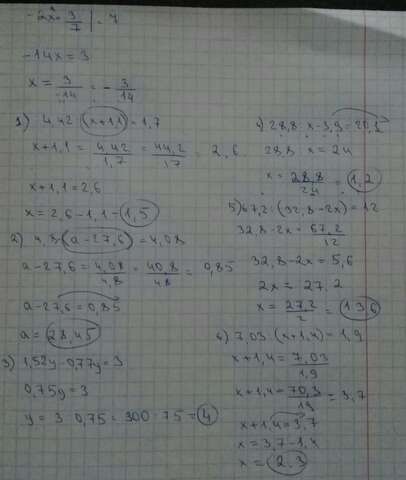 -2x = 3/7 | · 7
-14x = 3
x = 3/-14 = - 3/14
1) 4.42 : (x+1,1) = 1,7
x+1,1 = 4.42/1,7 = 44,2/17 = 2,6
x+1,1 = 2,6
x = 2,6 - 1,1 = 1,5
2) 4,8 (a - 27,6) = 4,08
a - 27,6 = 4,08/4,8 = 40,8/48 = 0,85
a - 27,6 = 0,85
a = 28,45
3) 1,52y - 0,77y = 3
0,75y = 3
y = 3 : 0,75 = 300 : 75 = 4
4) 28,8 : x - 3,9 = 20,1
28,8 : x = 24
x = 28,8/24 = 1,2
5) 67,2 : (32,8 - 2x) = 12
32,8 - 2x = 67,2/12
32,8 - 2x = 5,6
2x = 27,2
x = 27,2/2 = 13,6
6) 7,03 : (x+1,4) = 1,9
x+1,4 = 7,03/1,9
x+1,4 = 70,3/19 = 3,7
x+1,4 = 3,7
x = 3,7 - 1,4
x = 2,3